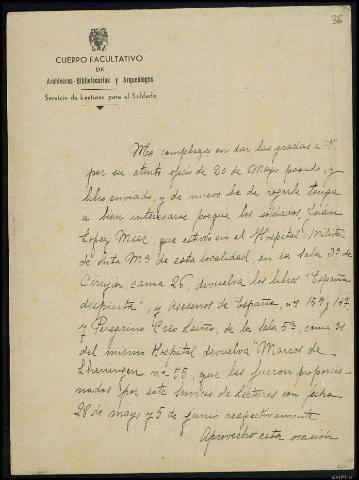 36
CUERPO FACULTATIVO
DE
Archiveros-Bibliotecarios y Arqueólogos
Servicio de Lecturas para el Soldado
Me complazco en dar las gracias a V.
por su atento oficio de 20 de Mayo pasado, y
libro enviado, y de nuevo he de rogarle tenga
a bien interesarse porque los soldados, Juan
Lopez Meer, que estuvo en el Hospital Militar
de Sta Mª de esta localidad, en la Sala 3ª de
Cirugía, cama 26, devuelva los libros "España
despierta", y Asesinos de España, nos 159 y 147,
y Peregrino Creo, de la Sala 5ª, cama 31
del mismo Hospital devuelva "Marcos de
nº 55, que les fueron proporcio-
nados por este Servicio de Lecturas con fecha
28 de mayo y 5 de junio respectivamente
Aprovecho esta ocasión
AHPLU